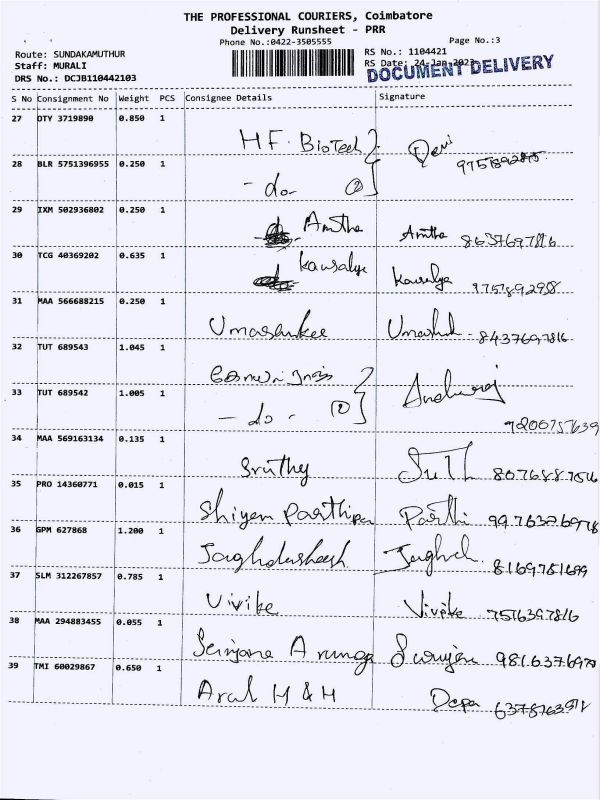 THE PROFESSIONAL COURIERS, Coimbatore
Delivery Runsheet - PRR
Phone No.:0422-3505555
Page No.:3
Route: SUNDAKAMUTHUR
RS No.: 1104421
Staff: MURALI
RS Date: 24-Jan-2023
DOCUMENT DELIVERY
DRS No.: DCJB110442103
S No Consignment No Weight PCS Consignee Details Signature
27 DTY 3719890 0.850 1
HF. BioTech Devi
28 BLR 5751396955 0.250 1
- do - ②
29 IXM 502936802 0.250 1
Amtha Amtha 8637697816
30 TCG 40369202 0.635 1
Kausalye Kausalya 9757892958
31 MAA 566688215 0.250 1
Umasankee 8437697816
32 TUT 689543 1.045 1
33 TUT 689542 1.005 1
- do - ② 9200757639
34 MAA 569163134 0.135 1
Sruthy
35 PRO 14360771 0.015 1
Shiyam Parthipan Parthi
36 GPM 627868 1.200 1
8169781699
37 SLM 312267857 0.785 1
Vivike Viveke 7516397816
38 MAA 294883455 0.055 1
39 TMI 60029867 0.650 1
Aral H & H Depa